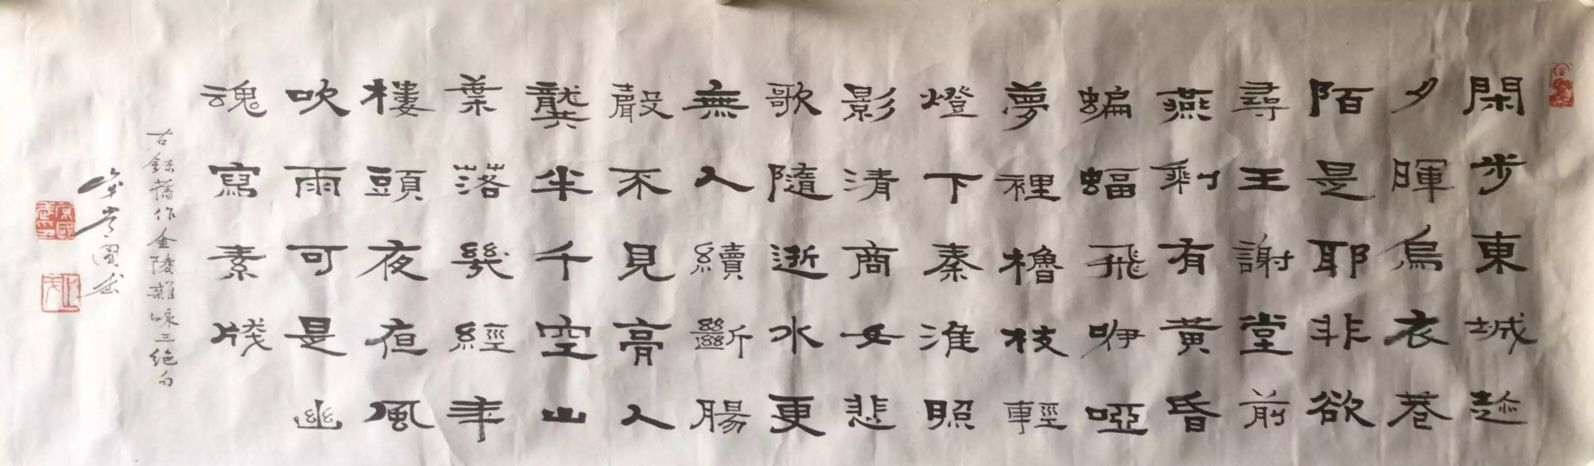 閑步東城趁
夕暉烏衣巷
陌是耶非欲
尋王謝堂前
燕剩有黃昏
蝙蝠飛咿啞
夢裡櫓枝輕
燈下秦淮照
影清商女悲
歌隨逝水更
無人續斷腸
聲不見高人
龔半千空山
葉落幾經年
樓頭夜夜風
吹雨可是幽
魂寫素牋
右錄舊作金陵雜咏三絶句